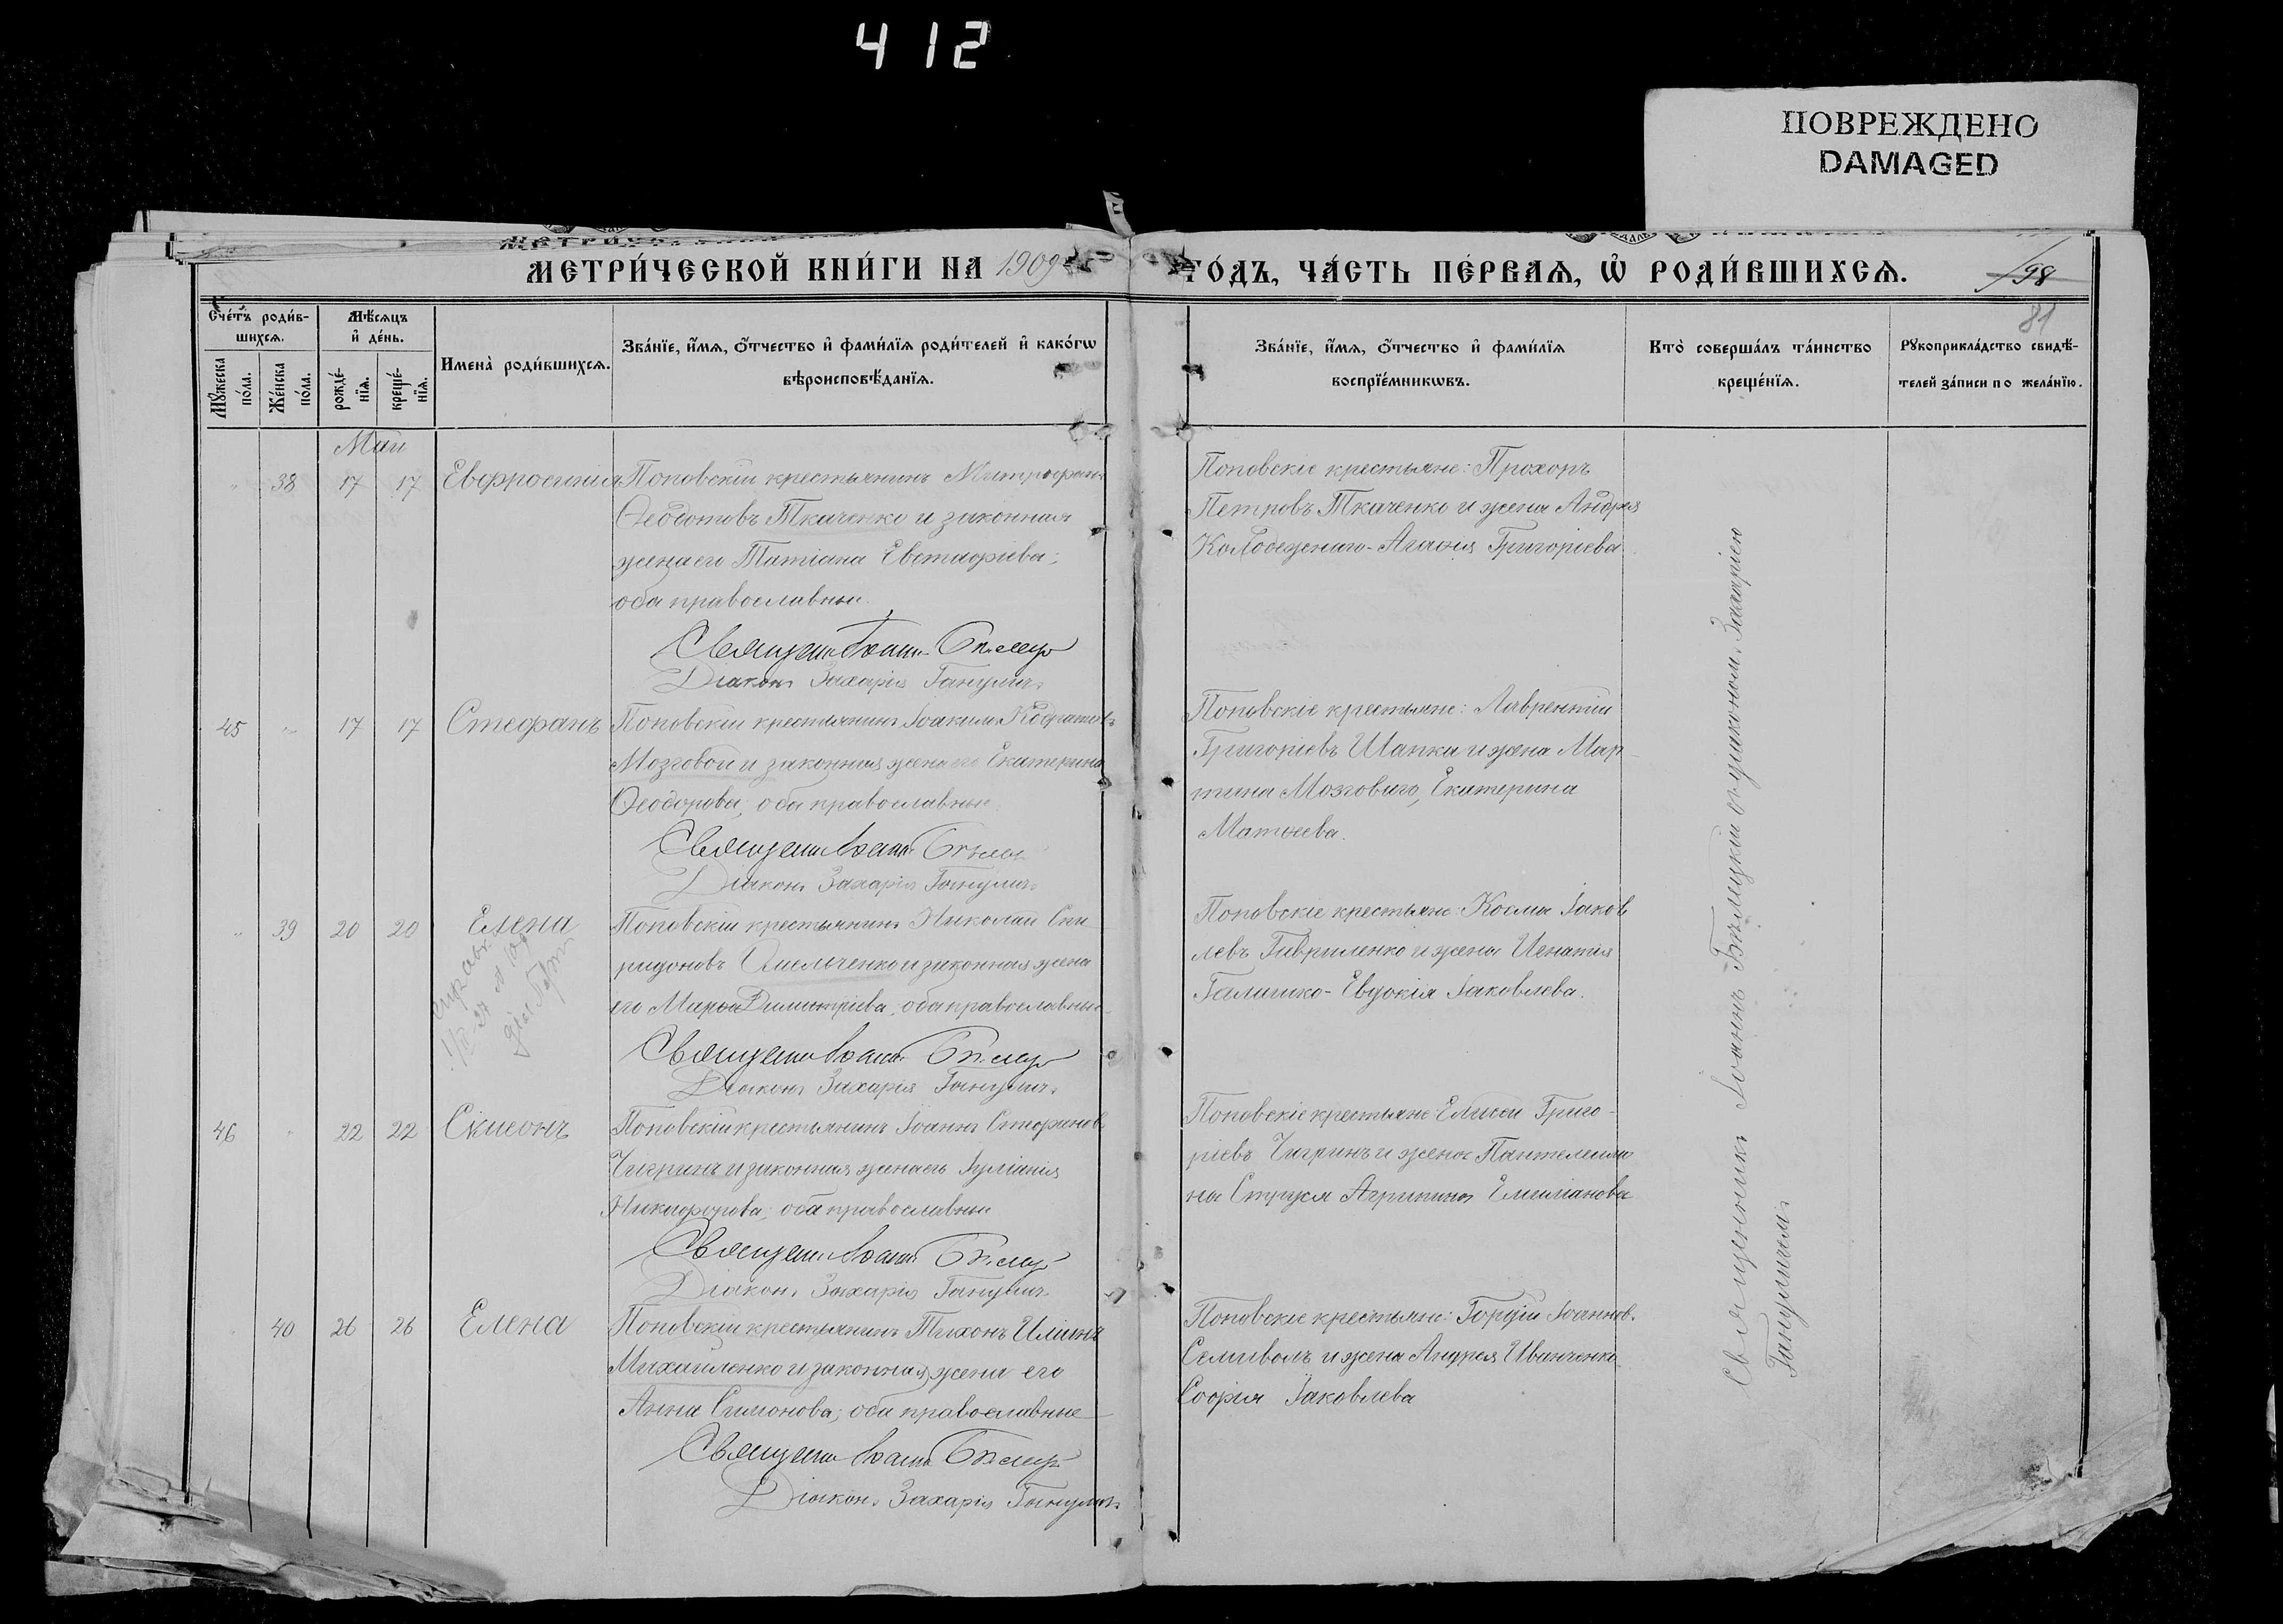 412
ПОВРЕЖДЕНО
DAMAGED
МЕТРИ́ЧЕСКОЙ КНИ́ГИ НА 1909 ГО́ДЪ, ЧА́СТЬ ПЕ́РВАѦ, Ѡ҆ РОДИ́ВШИХСѦ.
198
81
Сче́тъ роди́в-
шихсѧ.
Мꙋ́жеска
по́ла.
Же́нска
по́ла.
Мѣ́сѧцъ
и҆ де́нь.
рожде́-
нїѧ.
креще́-
нїѧ.
Имена̀ роди́вшихсѧ.
Зва́нїе, и҆́мѧ, ѻ҆́тчество и҆ фами́лїѧ роди́телей и҆ како́гѡ
вѣроисповѣ́данїѧ.
Зва́нїе, и҆́мѧ, ѻ҆́тчество и҆ фами́лїѧ
воспрїе́мникѡвъ.
Кто̀ соверша́лъ та́инство
креще́нїѧ.
Рꙋкоприкла́дство свидѣ́-
телей за́писи по жела́нїю.
Май
" 38 17 17 Евфросинія
Поповскій крестьянинъ Митрофанъ
Ѳеодотовъ Ткаченко и законная
жена его Татіана Евстафіева;
оба православные.
Священ. Іоаннъ Бѣлец
Діаконъ Захарія Ганулич.
Поповскіе крестьяне: Прохоръ
Петровъ Ткаченко и жена Андрея
Колодежнаго - Агафія Григоріева.
45 " 17 17 Стефанъ
Поповскій крестьянинъ Іоакимъ Кодратовъ
Мозговой и законная жена его Екатерина
Ѳеодорова; оба православные.
Священ. Іоаннъ Бѣлец
Діаконъ Захарія Ганулич.
Поповскіе крестьяне: Лаврентій
Григоріевъ Шапка и жена Мар-
тина Мозговаго, Екатерина
Матѳеева.
" 39 20 20 Елена
Поповскій крестьянинъ Николай Спи-
ридоновъ Омельченко и законная жена
его Марѳа Димитріева, оба православные.
Священ. Іоаннъ Бѣлец
Діаконъ Захарія Ганулич.
Поповскіе крестьяне: Косма Іаков-
левъ Гавриленко и жена Игнатія
Галушко - Евдокія Іаковлева.
46 " 22 22 Сѵмеонъ
Поповскій крестьянинъ Іоаннъ Стефановъ
Чигринъ и законная жена его Іуліанія
Никифорова; оба православные
Священ. Іоаннъ Бѣлец
Діаконъ Захарія Ганулич.
Поповскіе крестьяне Елисей Григо-
ріевъ Чигринъ и жена Пантелеимо-
на Струся Агрипина Емиліанова
40 26 26 Елена
Поповскій крестьянинъ Тихонъ Иліинъ
Михайленко и законная жена его
Анна Симонова; оба православные
Священ. Іоаннъ Бѣлец
Діаконъ Захарія Ганулич.
Поповскіе крестьяне: Гордій Іоаннов.
Семиволъ и жена Андрея Иванченко
Софія Іаковлева
Священникъ Іоаннъ Бѣлецкій съ діакономъ Захаріею
Гануличемъ